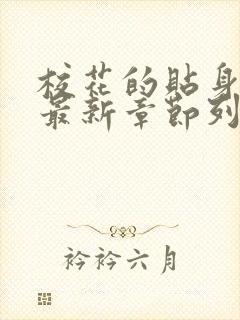 校花的贴身
最新章节列
衿衿六月